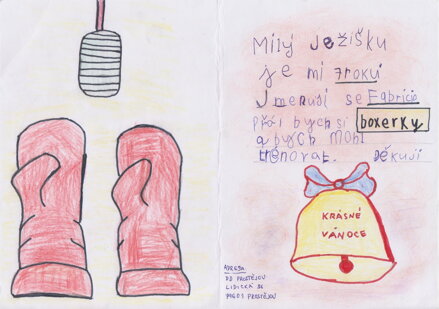 Milý Ježíšku
je mi 7roků
Jmenuji se Fabricio
přál bych si boxerky
abych mohl
trénovat. Děkuji
KRÁSNÉ
VÁNOCE
ADRESA:
DD PROSTĚJOV
LIDICKÁ 86
79601 PROSTĚJOV